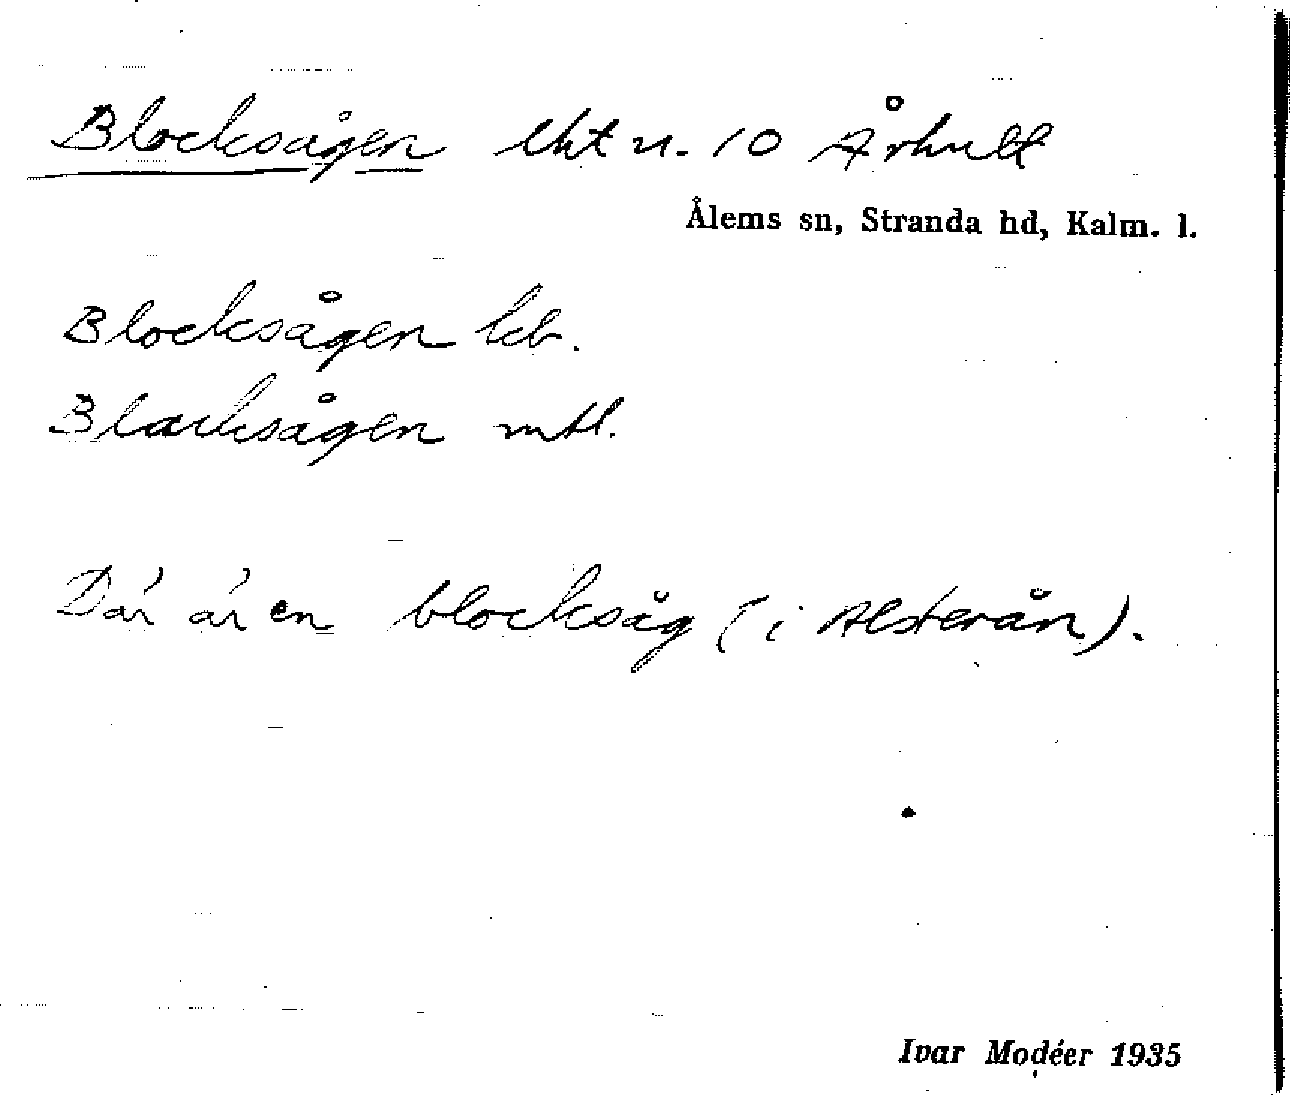 Blocksågen lht u. 10 Århult
Ålems sn, Stranda hd, Kalm. l.
Blocksågen kb.
Blacksågen mtl.
Där är en blocksåg (i Alsterån).
Ivar Modéer 1935